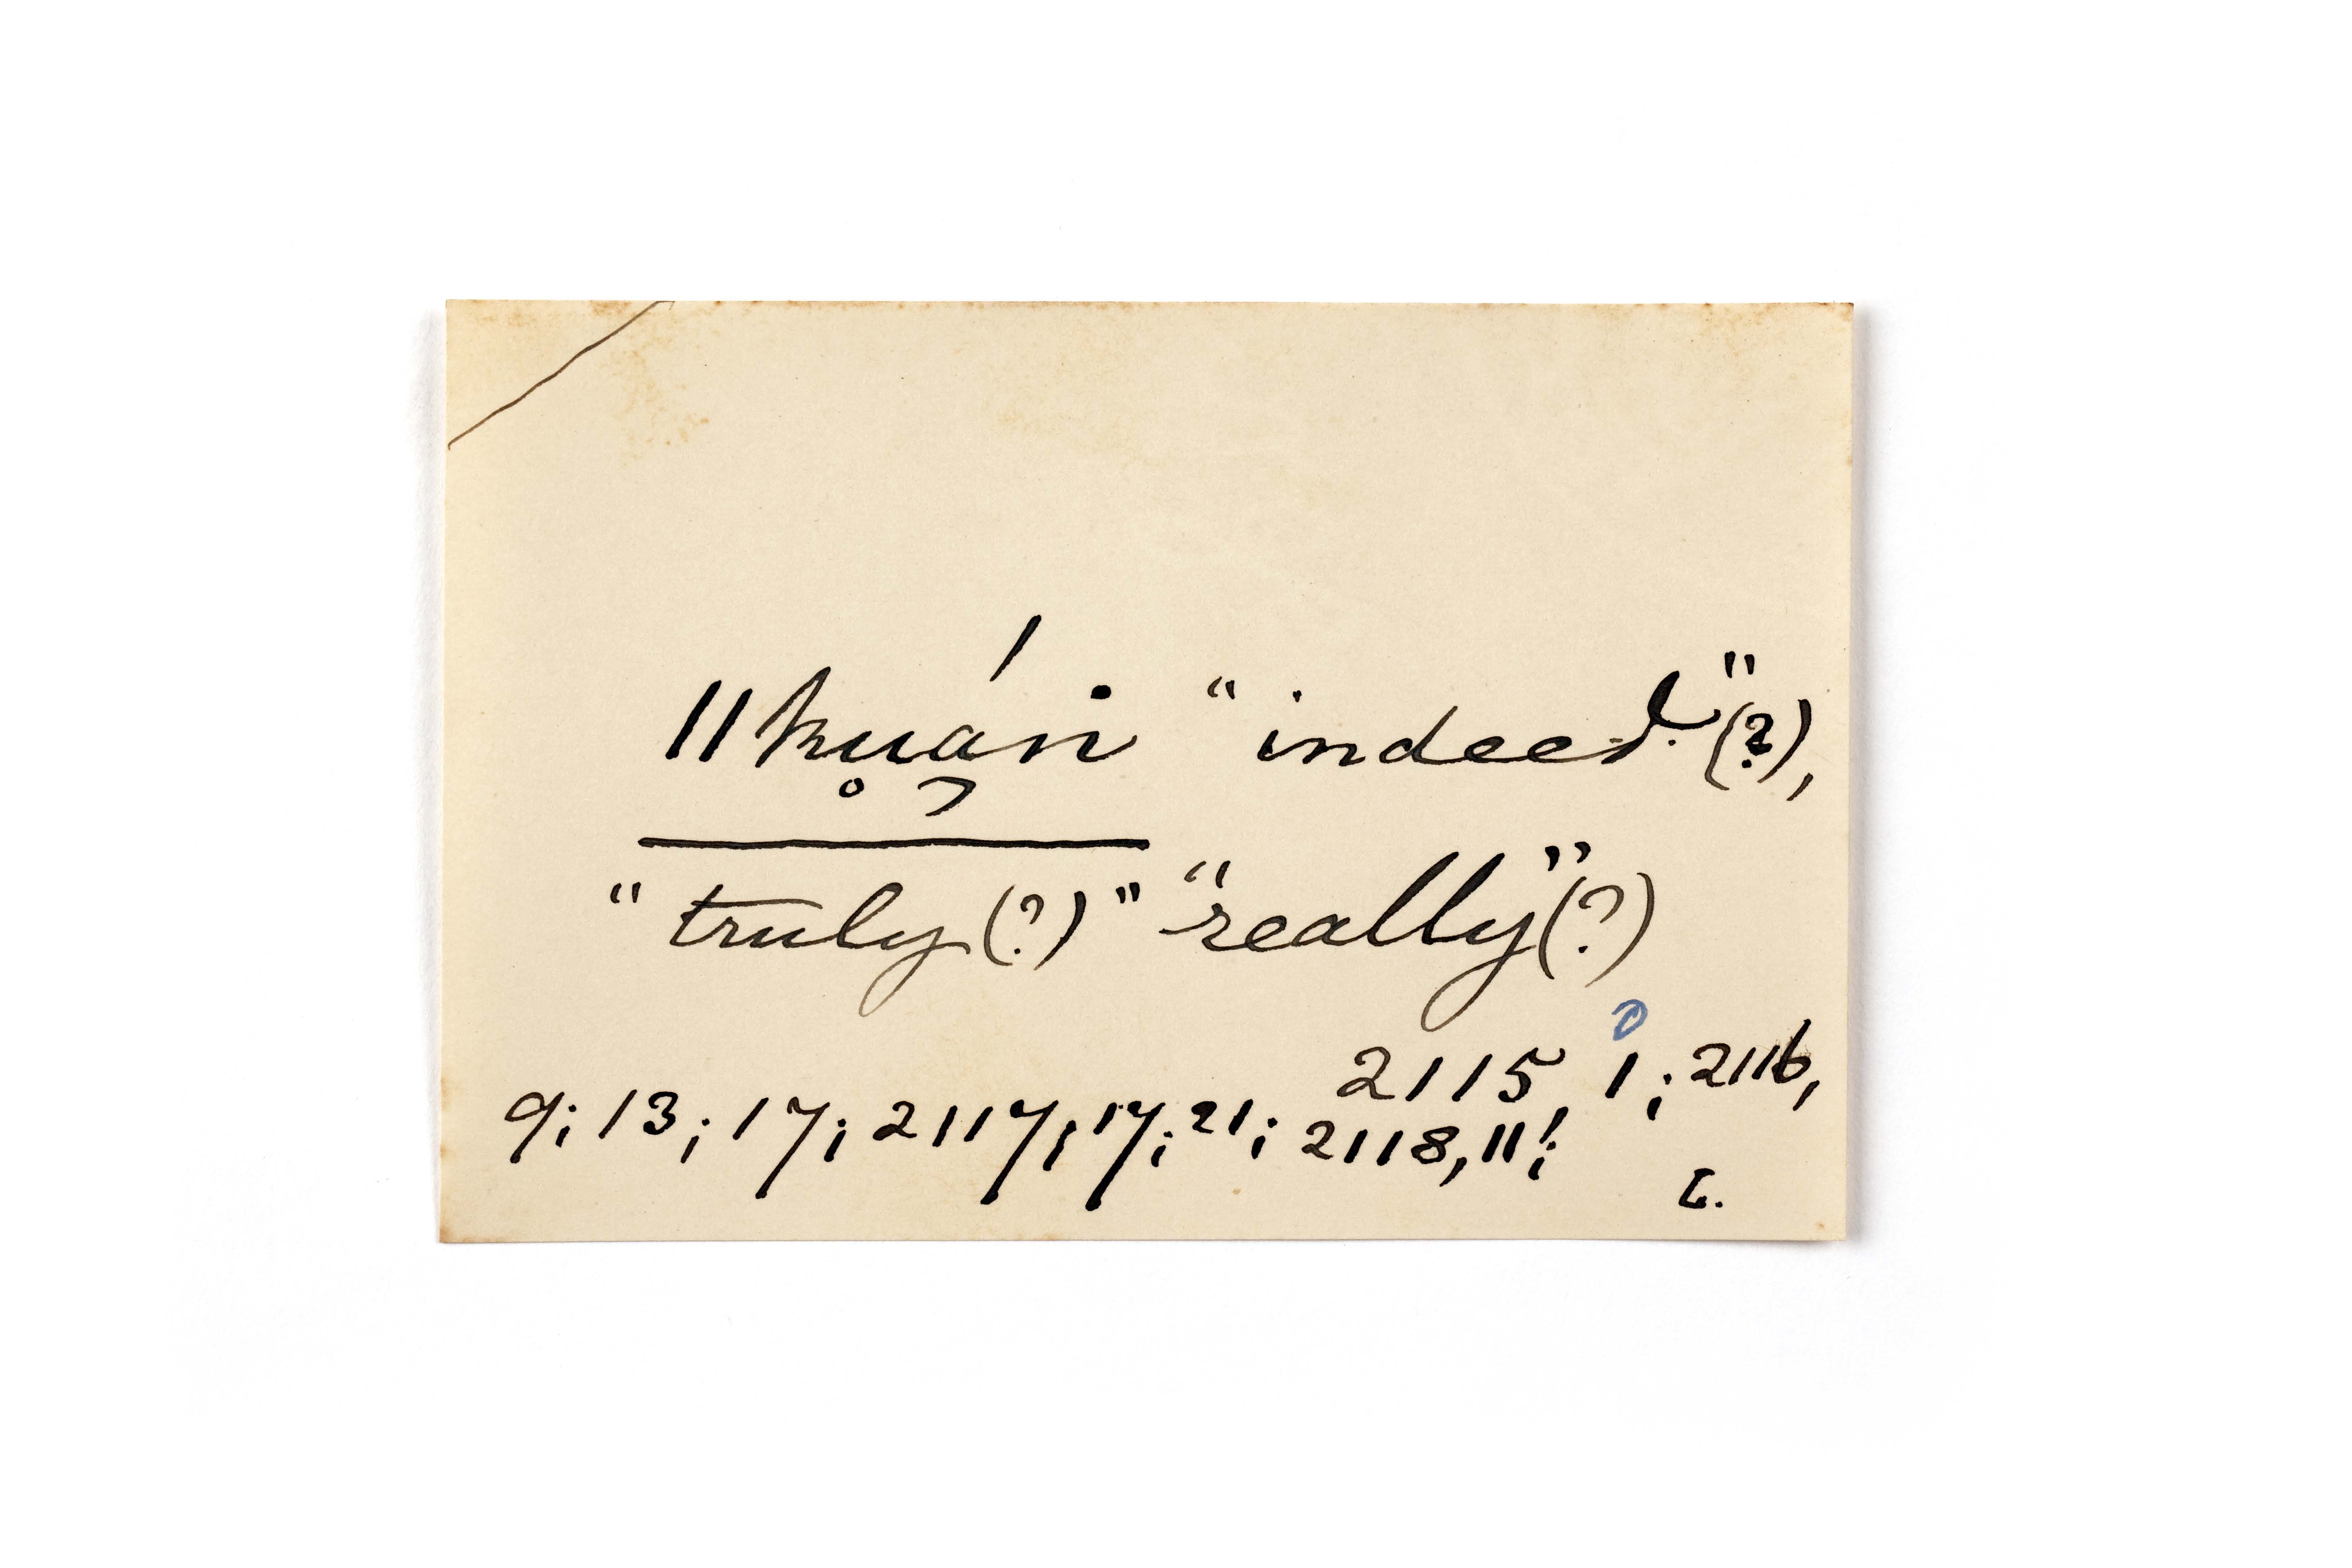 ǁku̥á̡ṅ “indeed”(?),
“truly(?)” “really”(?)
2115, 1; 2116,
9; 13; 17; 2117; 17; 21; 2118, 11!;
L.